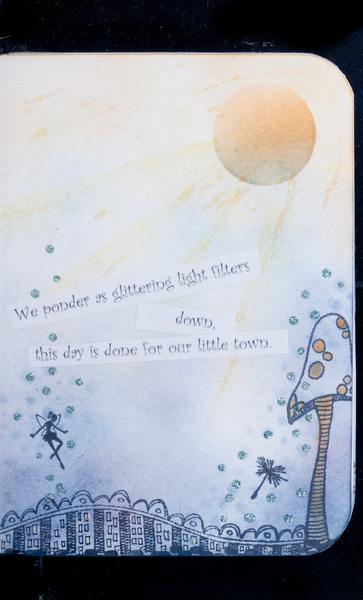 We ponder as glittering light filters
down,
this day is done for our little town.